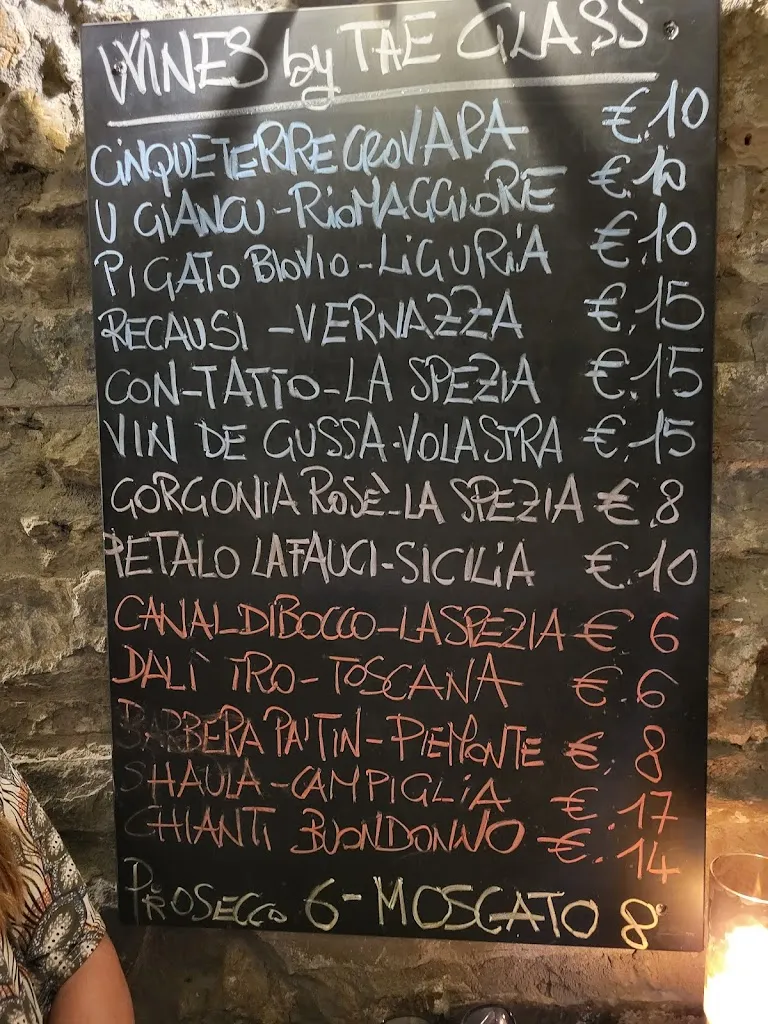 WINES by THE GLASS
CINQUETERRE CROVARA €.10
U GIANCU-RIOMAGGIORE €.10
PIGATO BIOVIO-LIGURIA €.10
RECAUSI -VERNAZZA €.15
CON-TATTO-LA SPEZIA €.15
VIN DE GUSSA-VOLASTRA €.15
GORGONIA ROSÈ-LA SPEZIA €.8
PETALO LAFAUCI-SICILIA €.10
CANALDIBOCCO-LASPEZIA € 6
DALÌ TRO-TOSCANA €.6
BARBERA PAITIN-PIEMONTE €. 8
SHAULA-CAMPIGLIA €.17
CHIANTI BUONDONNO €.14
PROSECCO 6-MOSCATO 8